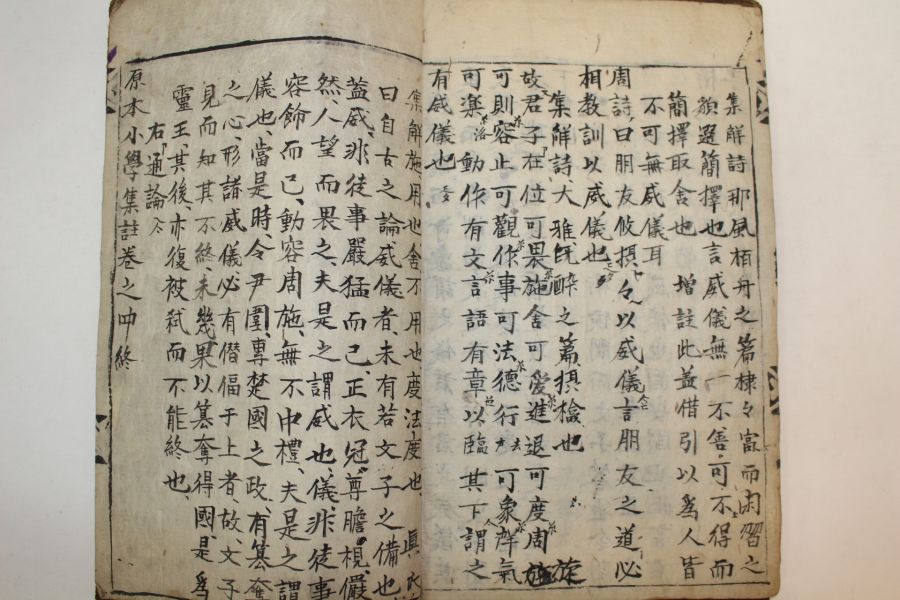 集解詩那風栢舟之篇棣々富而闲習之
貌選簡擇也言威儀無一不善可不得而
簡擇取舍也 增註此盖借引以爲人皆
不可無威儀耳
周詩曰朋友攸摂々以威儀言朋友之道必
相教訓以威儀也
集解詩大雅旣醉之篇摂檢也 旋
故君子在位可畏施舍可爱進退可度周
可則容止可觀作事可法德行可象声氣
可楽動作有文言語有章以臨其下謂之
有威儀也
集解施用也舍不用也度法度也 眞氏
曰自古之論威儀者、未有若文子之備也
蓋威、非徒事嚴猛而己、正衣冠、尊瞻視、儼
然、人望而畏之、夫是之謂威也、儀、非徒事
容飾而己、動容周施、無不中禮、夫是之謂
儀也、當是時、令尹圍、專楚國之政、有篡奪
之心、形諸威儀、必有僭偪于上者、故、文子
見而知其不終、未幾、果以篡奪得國、是爲
靈王、其後、亦復被弑而不能終也、
右通論
原本小學集註卷之四終